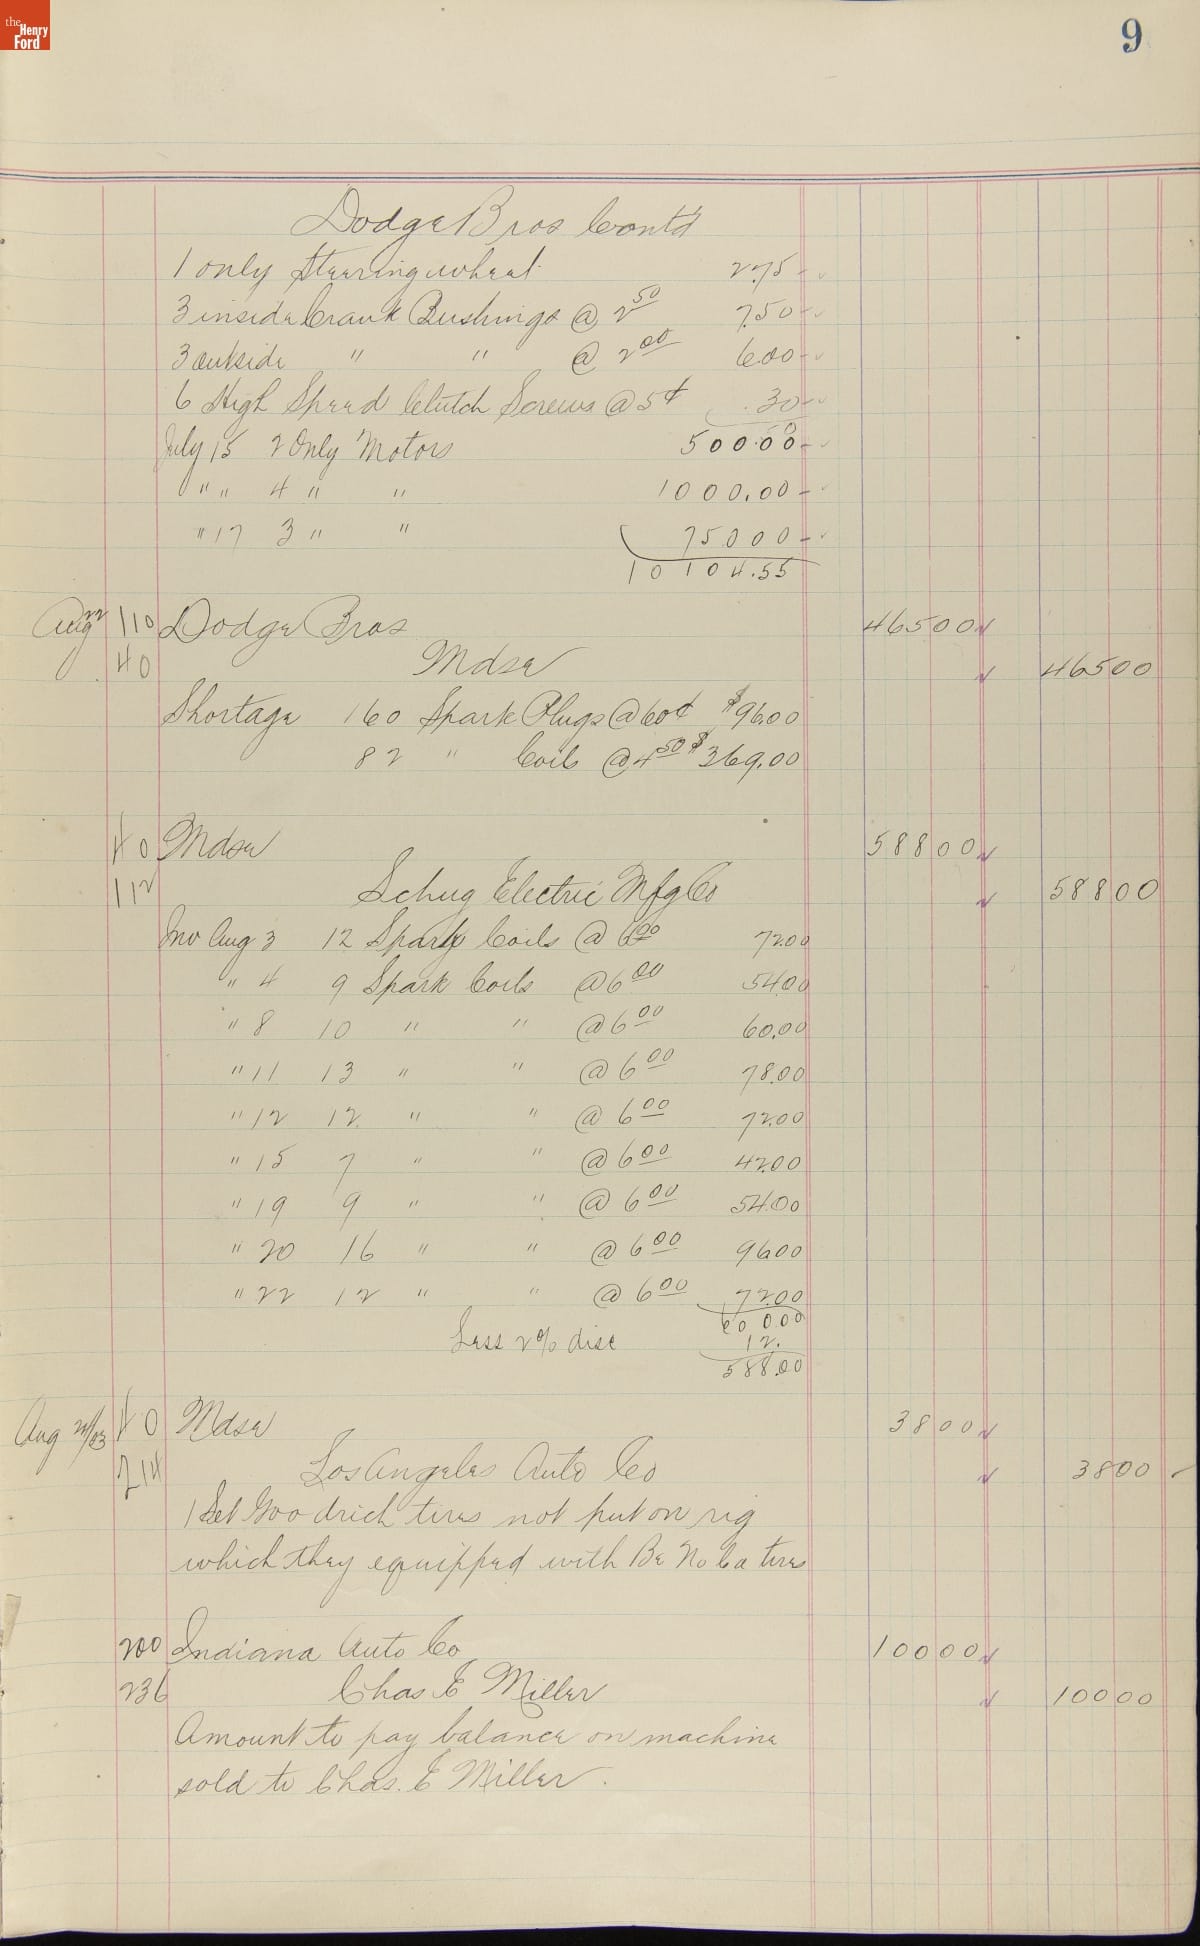 the Henry Ford
9
Dodge Bros Cont'd
1 only Steering wheel 2.75
3 inside Crank Bushings @ 2 50 7.50
3 outside " " @ 2 00 6.00
6 High Speed Clutch Screws @ 5¢ .30
July 15 2 Only Motors 500.00
" " 4 " " 1000.00
" 17 3 " " 750.00
10104.55
Aug 22 110 Dodge Bros 465 00
40 Mdse 465 00
Shortage 160 Spark Plugs @ 60¢ $96.00
82 " Coils @ 4 50 $369.00
40 Mdse 588 00
112 Schug Electric Mfg Co 588 00
Inv Aug 3 12 Spark Coils @ 6 00 72.00
" 4 9 Spark Coils @ 6 00 54.00
" 8 10 " " @ 6 00 60.00
" 11 13 " " @ 6 00 78.00
" 12 12 " " @ 6 00 72.00
" 15 7 " " @ 6 00 42.00
" 19 9 " " @ 6 00 54.00
" 20 16 " " @ 6 00 96.00
" 22 12 " " @ 6 00 72.00
600.00
Less 2% disc 12.
588.00
Aug /03 40 Mdse 38 00
214 Los Angeles Auto Co 38 00
1 Set Goodrich tires not put on rig
which they equipped with Be No Ca tires
200 Indiana Auto Co 100 00
236 Chas E Miller 100 00
Amount to pay balance on machine
sold to Chas. E Miller.